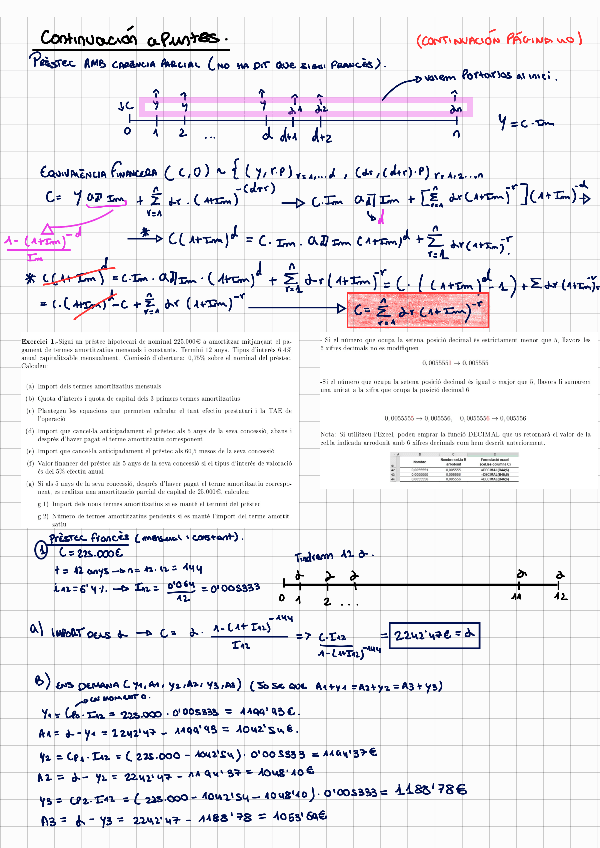 Continuación apuntes.
(CONTINUACIÓN PÁGINA 40)
PRÈSTEC AMB CARÈNCIA PARCIAL (NO HA DIT QUE SIGUI FRANCÈS).
volem portar-los al inici.
↓C y y y α1 α2 αn
0 1 2 ... d d+1 d+2 n
Y = C · Im
EQUIVALÈNCIA FINANCERA (C,0) ~ { (Y, r·p) r=1,...d , (αr, (d+r)·p) r=1,2...n
C = Y a d┐Im + Σ αr · (1+Im)^-(d+r) → C·Im a d┐Im + [Σ αr (1+Im)^-r] (1+Im)^-d →
1-(1+Im)^-d / Im
* → C(1+Im)^d = C·Im · a d┐Im (1+Im)^d + Σ αr (1+Im)^-r.
* C(1+Im)^d = C·Im · a d┐Im · (1+Im)^d + Σ αr (1+Im)^-r = C · ((1+Im)^d - 1) + Σ αr (1+Im)^-r
= C·(1+Im)^d - C + Σ αr (1+Im)^-r → C = Σ αr (1+Im)^-r
Exercici 1.- Sigui un préstec hipotecari de nominal 225.000€ a amortitzar mitjançant el pa-
gament de termes amortitzatius mensuals i constants. Termini 12 anys. Tipus d'interès 6,4%
anual capitalitzable mensualment. Comissió d'obertura: 0,75% sobre el nominal del préstec.
Calculeu:
(a) Import dels termes amortitzatius mensuals
(b) Quota d'interès i quota de capital dels 3 primers termes amortitzatius
(c) Plantegeu les equacions que permeten calcular el tant efectiu prestatari i la TAE de
l'operació
(d) Import que cancel·la anticipadament el préstec als 5 anys de la seva concessió, abans i
després d'haver pagat el terme amortitzatiu corresponent
(e) Import que cancel·la anticipadament el préstec als 60,5 mesos de la seva concessió
(f) Valor financer del préstec als 5 anys de la seva concessió si el tipus d'interès de valoració
és del 5% efectiu anual
(g) Si als 5 anys de la seva concessió, després d'haver pagat el terme amortitzatiu correspo-
nent, es realitza una amortització parcial de capital de 25.000€, calculeu:
g.1) Import dels nous termes amortitzatius si es manté el termini del préstec
g.2) Número de termes amortitzatius pendents si es manté l'import del terme amortit-
zatiu
- Si el número que ocupa la setena posició decimal és estrictament menor que 5, llavors les
6 xifres decimals no es modifiquen
0,0055551 → 0,005555
-Si el número que ocupa la setena posició decimal és igual o major que 5, llavors li sumarem
una unitat a la xifra que ocupa la posició decimal 6
0,0055555 → 0,005556, 0,0055556 → 0,005556
Nota: Si utilitzeu l'Excel, podeu emprar la funció DECIMAL que us retornarà el valor de la
cel·la indicada arrodonit amb 6 xifres decimals com hem descrit anteriorment.
PRÈSTEC FRANCÈS (MENSUAL i CONSTANT).
1 C = 225.000€
t = 12 anys → n = 12·12 = 144
i12 = 6'4% → I12 = 0'064 / 12 = 0'005333
Tindrem 12 α.
α α α α α
0 1 2 ... 11 12
a) IMPORT DELS α → C = α · 1-(1+I12)^-144 / I12 => C·I12 / 1-(1+I12)^-144 = 2242'47€ = α
B) ENS DEMANA (Y1, A1, Y2, A2, Y3, A3) (JO SÉ QUE A1+Y1 = A2+Y2 = A3+Y3)
EN MOMENT 0.
Y1 = CP0 · I12 = 225.000 · 0'005333 = 1199'93€.
A1 = α - Y1 = 2242'47 - 1199'93 = 1042'54€.
Y2 = CP1 · I12 = (225.000 - 1042'54) · 0'005333 = 1194'37€
A2 = α - Y2 = 2242'47 - 1194'37 = 1048'10€
Y3 = CP2 · I12 = (225.000 - 1042'54 - 1048'10) · 0'005333 = 1188'78€
A3 = α - Y3 = 2242'47 - 1188'78 = 1053'69€